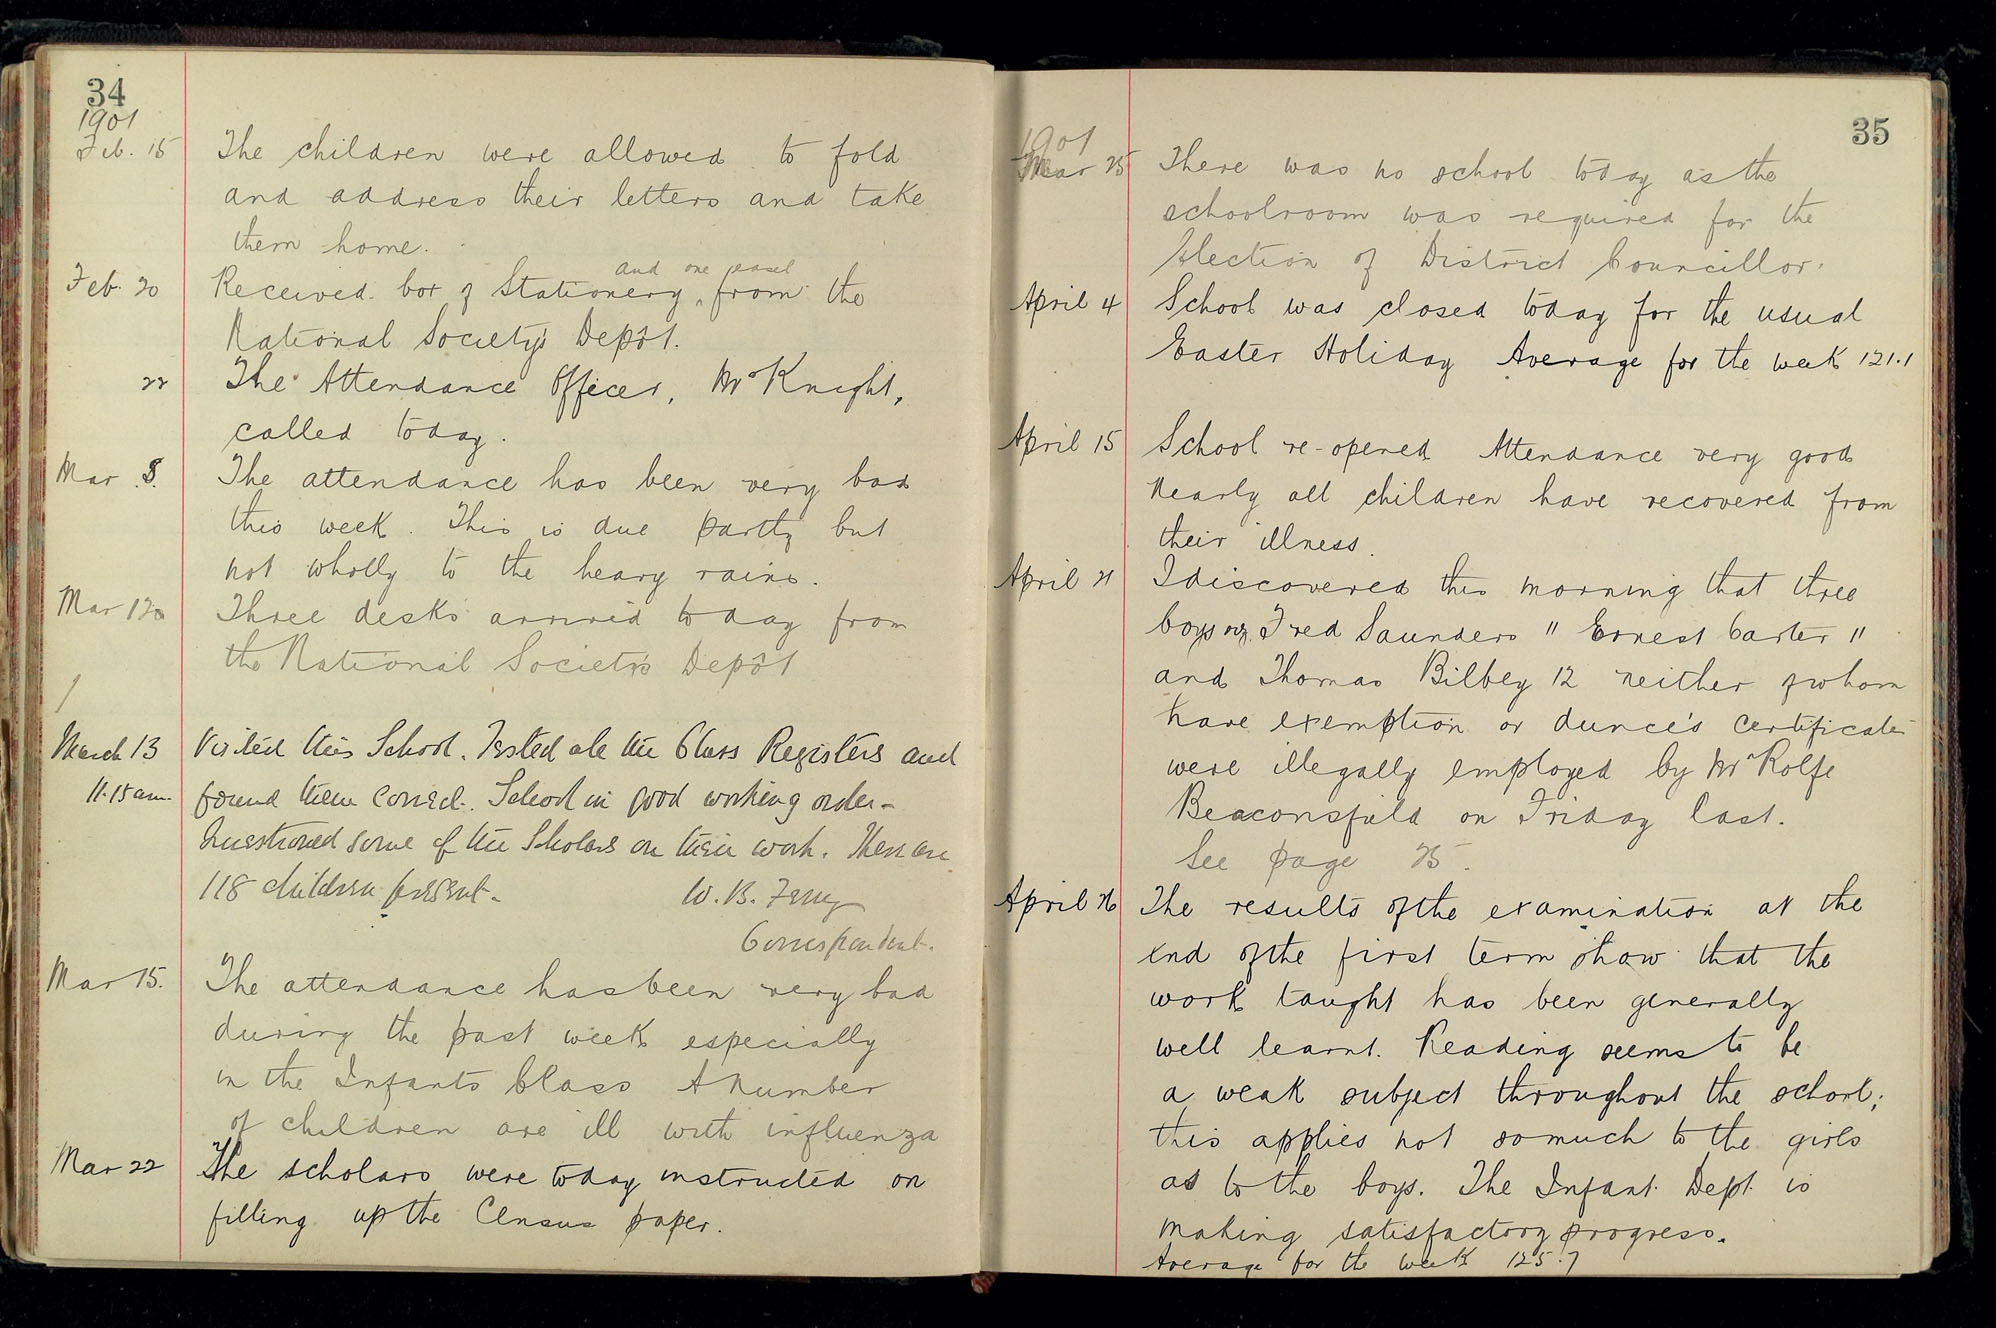 34
1901
Feb. 15 The children were allowed to fold
and address their letters and take
them home.
Feb. 20 Received box of Stationery and one easel from the
National Society's Depôt.
22 The Attendance Officer, Mr Knight,
called today.
Mar 8. The attendance has been very bad
this week. This is due partly but
not wholly to the heavy rains.
Mar 12 Three desks arrived today from
the National Society's Depôt
March 13 Visited this School. Tested all the Class Registers and
11.15 am. found them correct. School in good working order -
Questioned some of the Scholars on their work. There are
118 children present -
W. B.
Correspondent.
Mar 15. The attendance has been very bad
during the past week especially
in the Infants Class A number
of children are ill with influenza
Mar 22 The scholars were today instructed on
filling up the Census paper.
35
1901
Mar 25 There was no school today as the
schoolroom was required for the
Election of District Councillor.
April 4 School was closed today for the usual
Easter Holiday Average for the week 121.1
April 15 School re-opened Attendance very good
nearly all children have recovered from
their illness.
April 21 I discovered this morning that three
boys Fred Saunders " Ernest Carter "
and Thomas Bilbey 12 neither of whom
have exemption or dunce's certificate
were illegally employed by Mr Rolfe
Beaconsfield on Friday last.
See page 25.
April 26 The results of the examination at the
end of the first term show that the
work taught has been generally
well learnt. Reading seems to be
a weak subject throughout the school;
this applies not so much to the girls
as to the boys. The Infant Dept. is
making satisfactory progress.
Average for the week 125.7